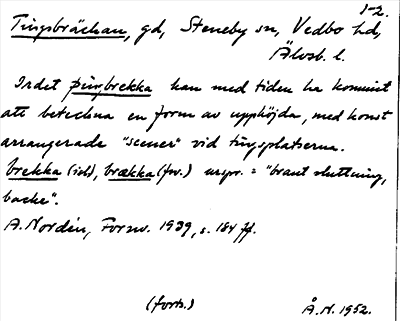 1-2.
Tingsbräckan, gd, Steneby sn, Vedbo hd,
Älvsb. l.
Ordet þingbrekka kan med tiden ha kommit
att beteckna en form av upphöjda, med konst
arrangerade "scener" vid tingsplatserna.
brekka (isl), brækka (fsv.) urspr. = "brant sluttning,
backe".
A. Nordén, Fornv. 1939, s. 184 ff.
(forts.) Å.N. 1952.